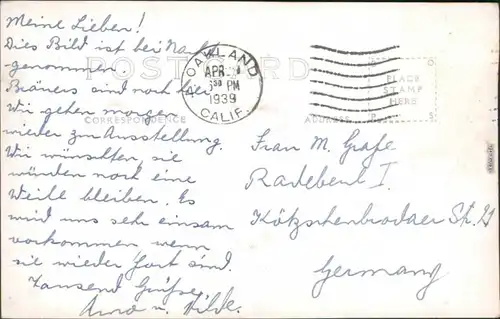 Meine Lieben!
Dies Bild ist bei Nacht
genommen.
Bräuers sind noch hier
Wir gehen morgen
wieder zur Ausstellung.
Wir wünschten, sie
würden noch eine
Weile bleiben. Es
wird uns sehr einsam
vorkommen, wenn
sie wieder fort sind.
Tausend Grüße,
u. Hilde.
POST CARD
CORRESPONDENCE
ADDRESS
OAKLAND
APR
30 PM
1939
CALIF.
PLACE
STAMP
HERE
Frau M. Grafe
Radebeul I.
Kötzschenbrodaer Str. 21
Germany